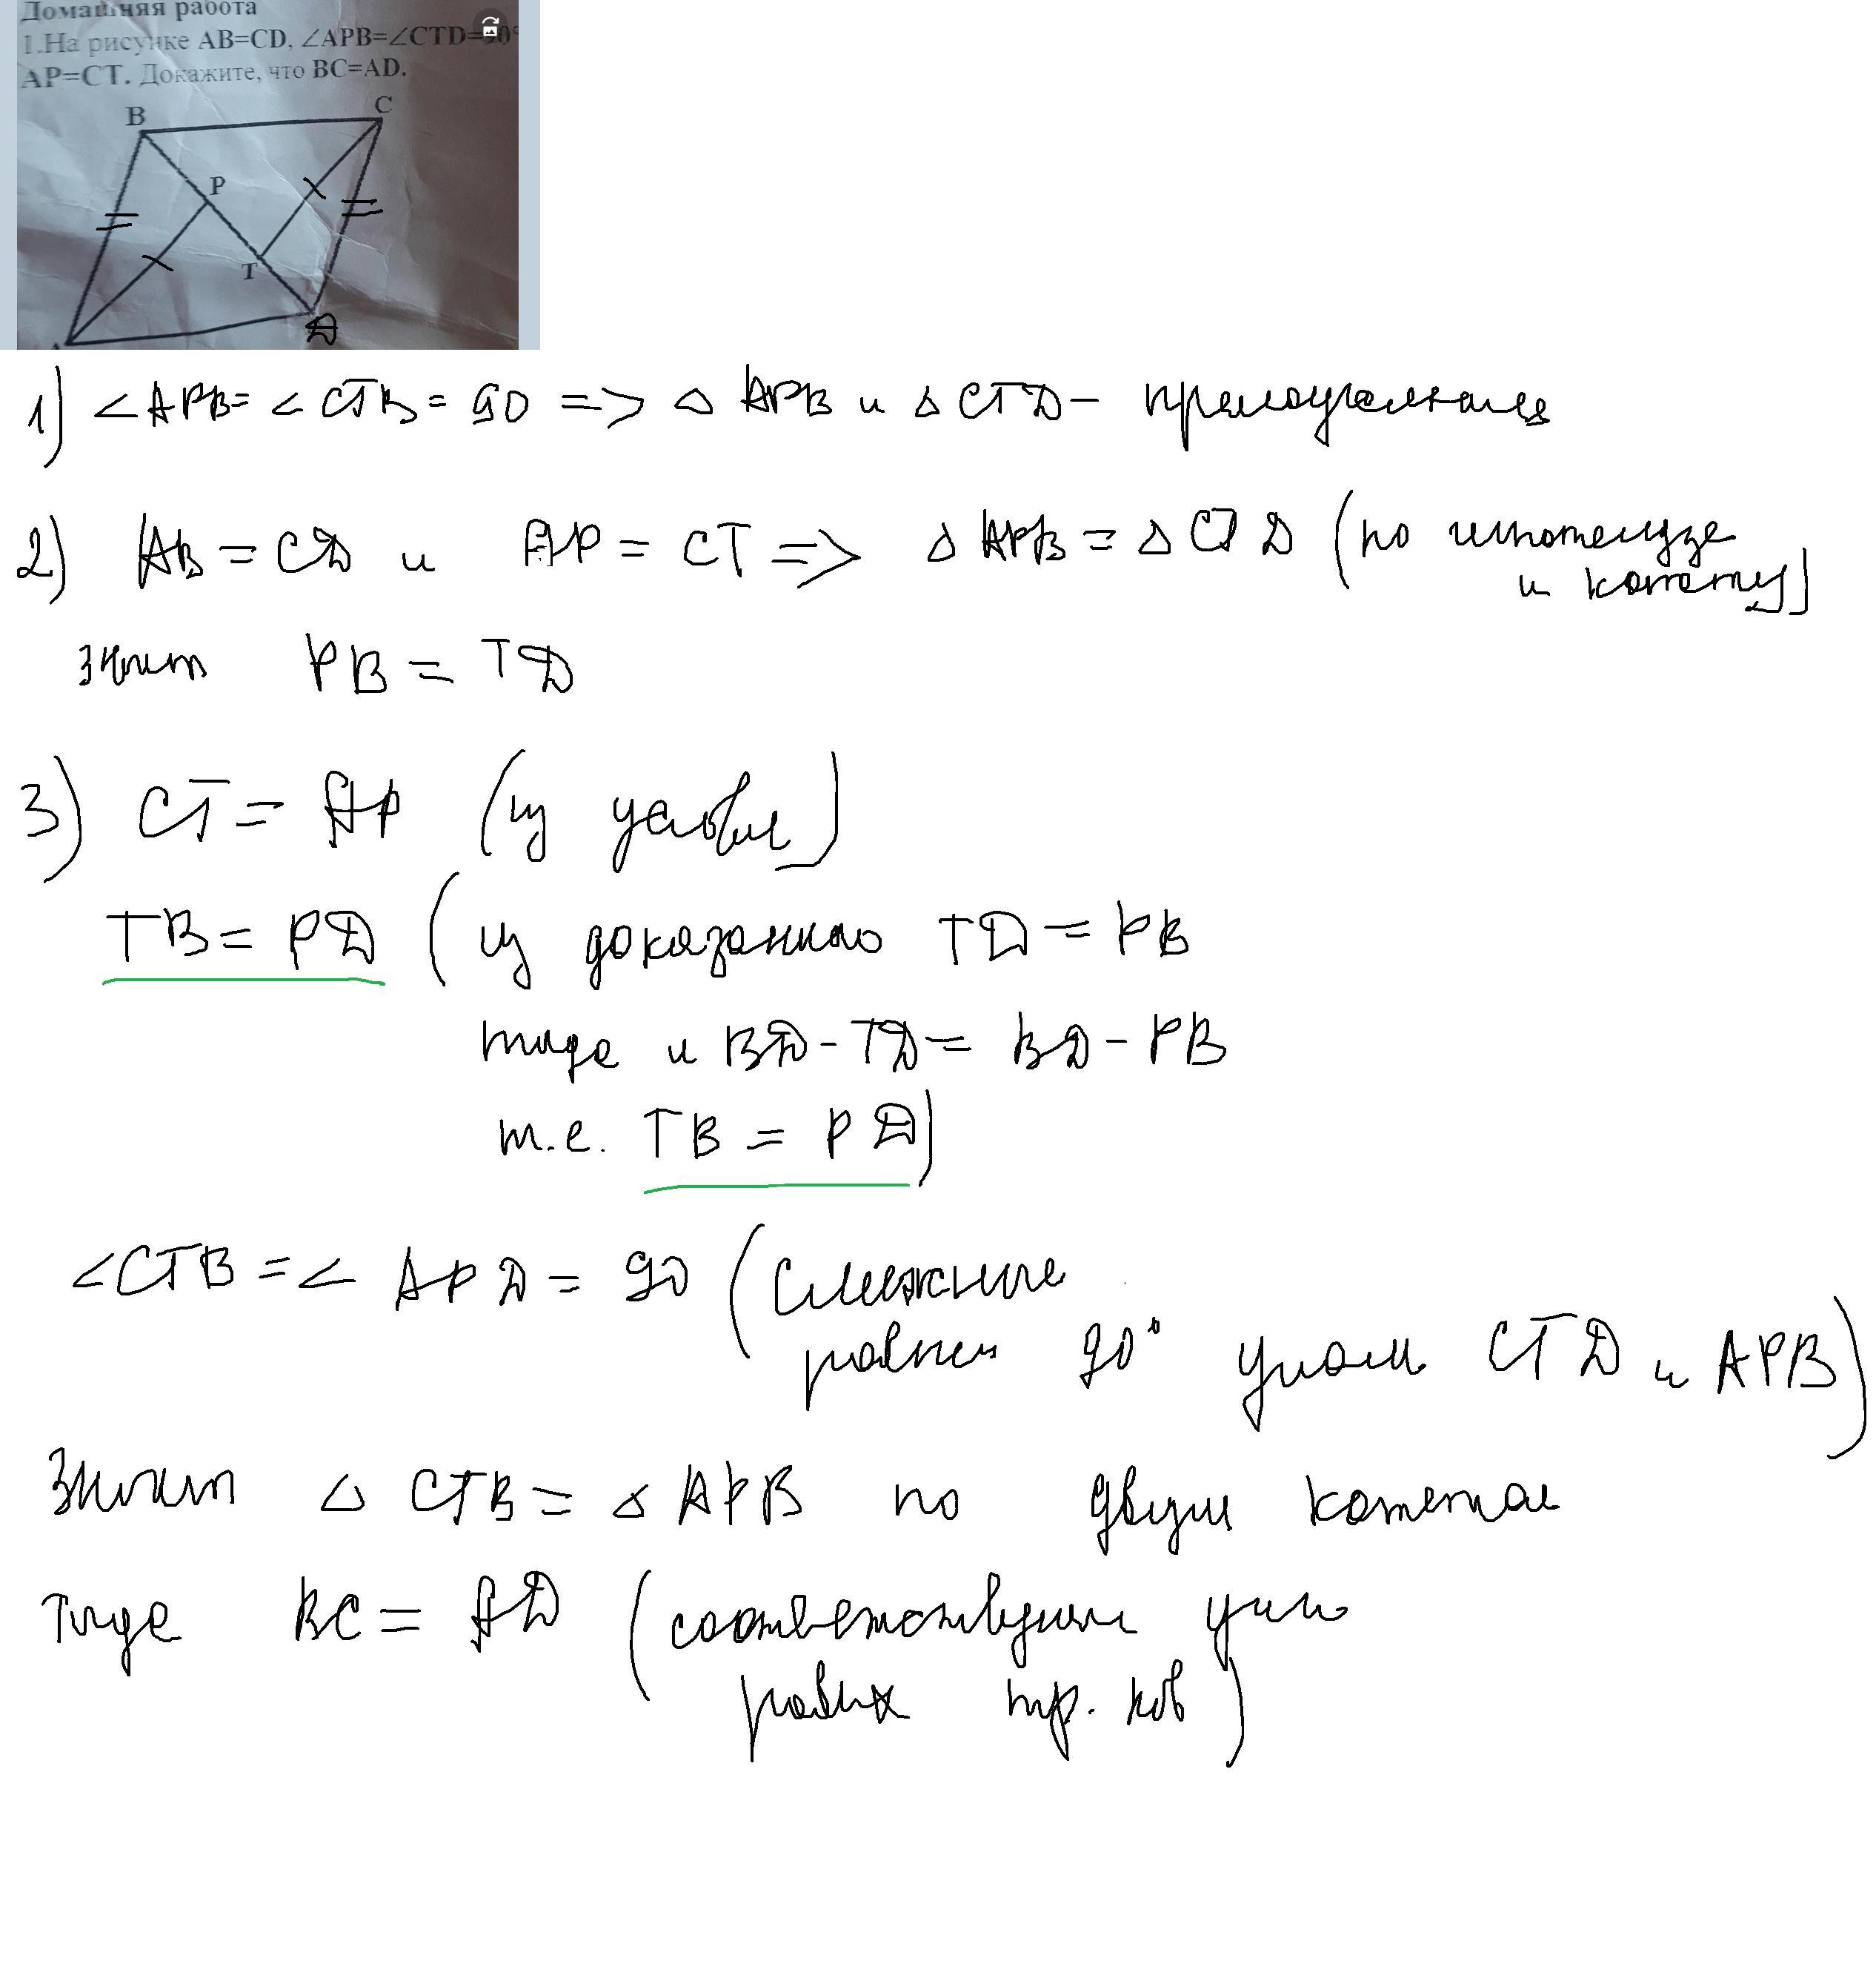 Домашняя работа
1.На рисунке AB=CD, ∠APB=∠CTD=90°
AP=CT. Докажите, что BC=AD.
B
C
P
T
D
1) ∠APB = ∠CTB = 90 => △ APB и △ CTD - прямоугольные
2) AB = CD и AP = CT => △ APB = △ CTD (по гипотенузе
и катету)
значит PB = TD
3) CT = AP (из условия)
TB = PD (из доказанного TD = PB
тогда и BD - TD = BD - PB
т.е. TB = PD)
∠CTB = ∠ APD = 90 (смежные
равным 90° углам CTD и APB)
Значит △ CTB = △ APB по двум катетам
тогда BC = AD (соответствующие
равных тр. ков)